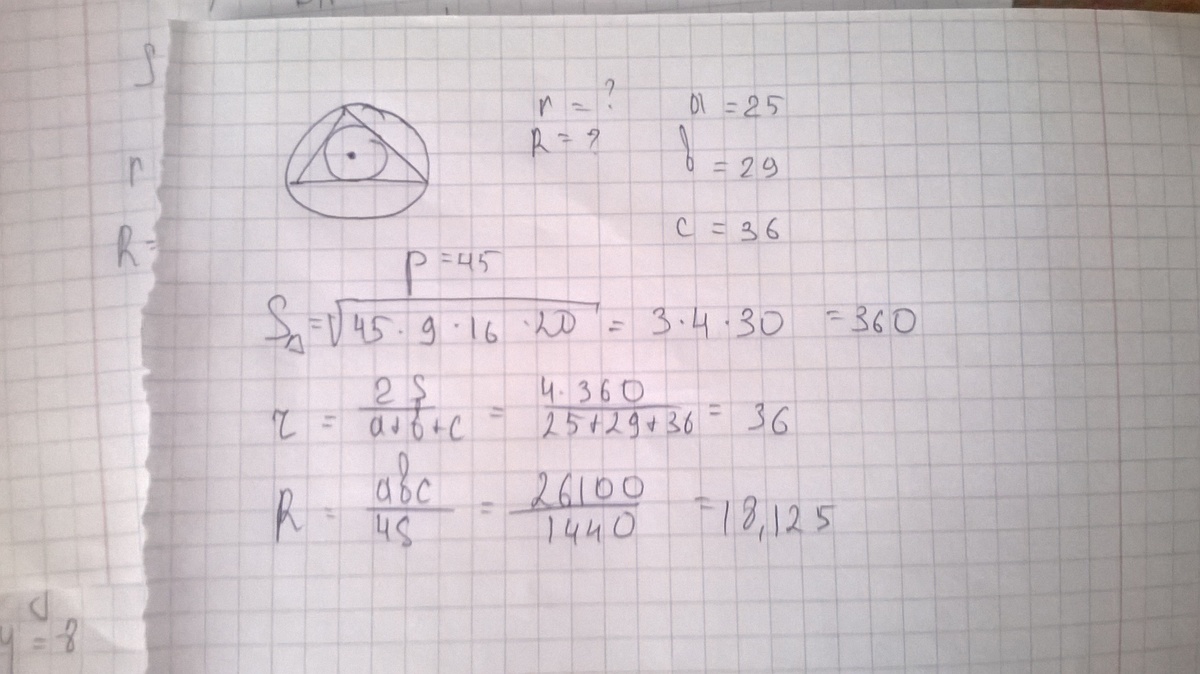 S
r = ? a = 25
R = ? b = 29
r
c = 36
R =
p = 45
S△ = √45 · 9 · 16 · 20 = 3 · 4 · 30 = 360
r = 2S / a+b+c = 4 · 360 / 25+29+36 = 36
R = abc / 4S = 26100 / 1440 = 18,125
y = -8